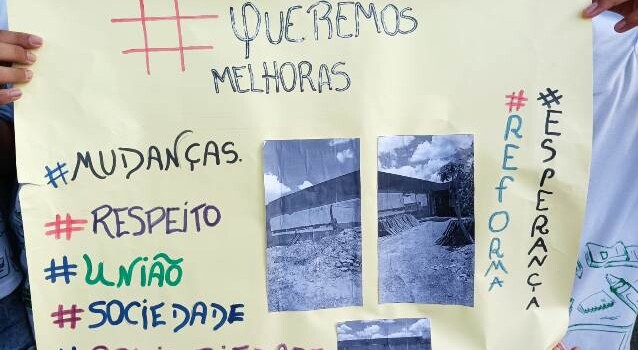 # QUEREMOS
MELHORAS
#MUDANÇAS.
#RESPEITO
#UNIÃO
#SOCIEDADE
#REFORMA
#ESPERANÇA